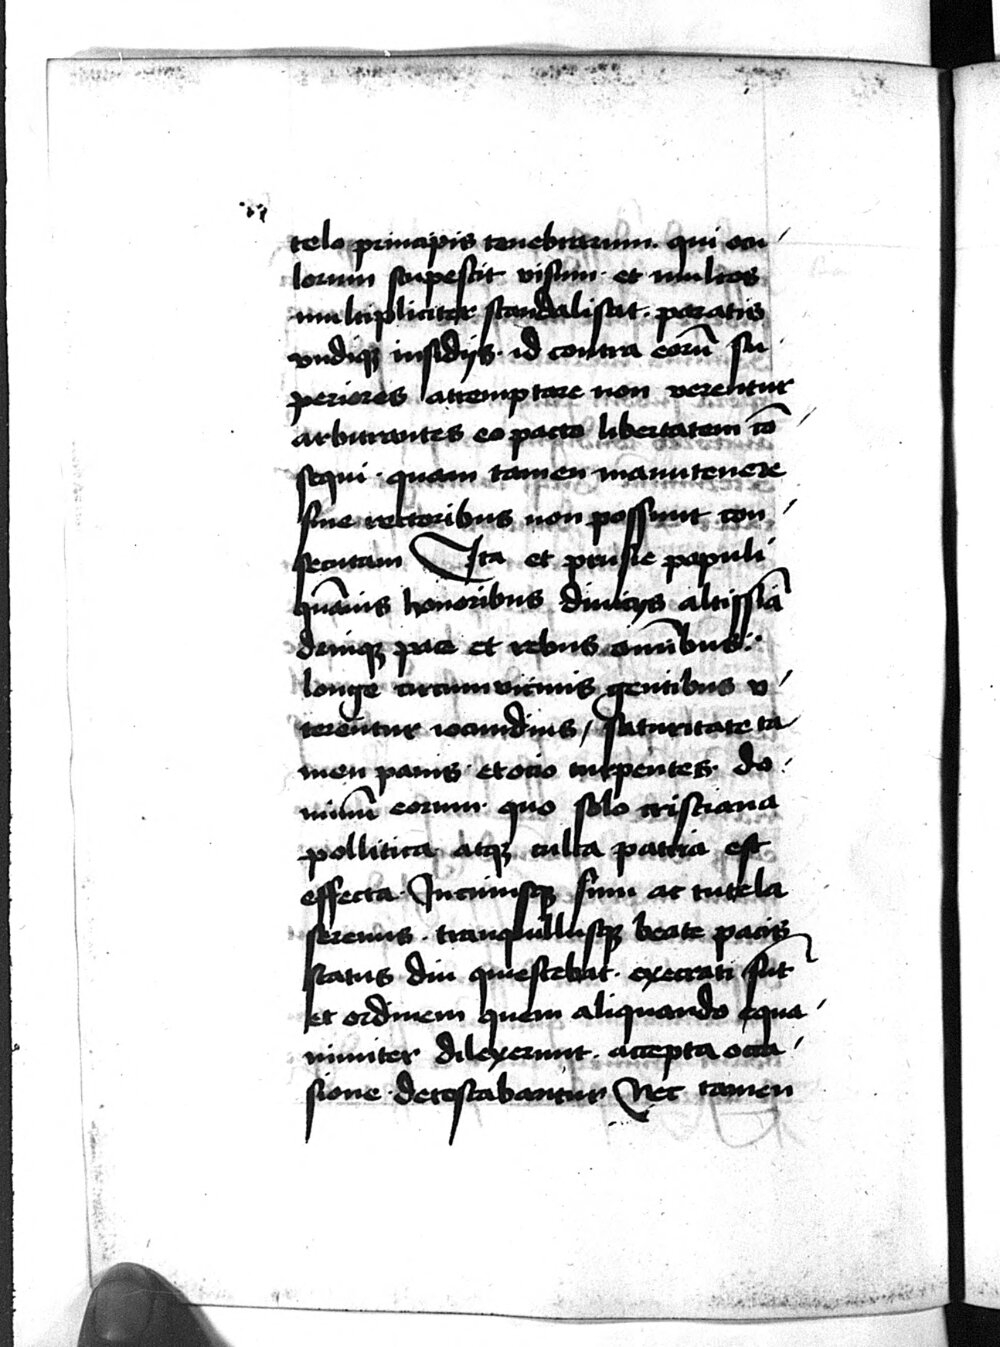 telo principis tenebrarum. qui ocu/
lorum stupescit visum. et multos
multipliciter scandalisat. paratis
vndiqꝫ insidijs. id contra eorū su/
periores attemptare non verentur
arbitrantes eo pacto libertatem cō/
sequi. quam tamen manutenere
sine rectoribus non possunt con/
secutam Ita et prusie populi
quāuis honoribus diuicijs altissīa
deniqꝫ pace et rebus omībus.
longe circumuicinis gentibus v/
terentur iocundius/ saturitate ta
men panis et ocio turpentes. do/
minū eorum. quo solo cristiana
pollitica atqꝫ culta patria est
effecta. In cuiusqꝫ sinu ac tutela
serenus. tranquillusqꝫ beate pacis
status diu quiescebat. execrati sūt
et ordinem quem aliquando equa/
nimiter dilexerunt. accepta occa/
sione detestabantur Nec tamen